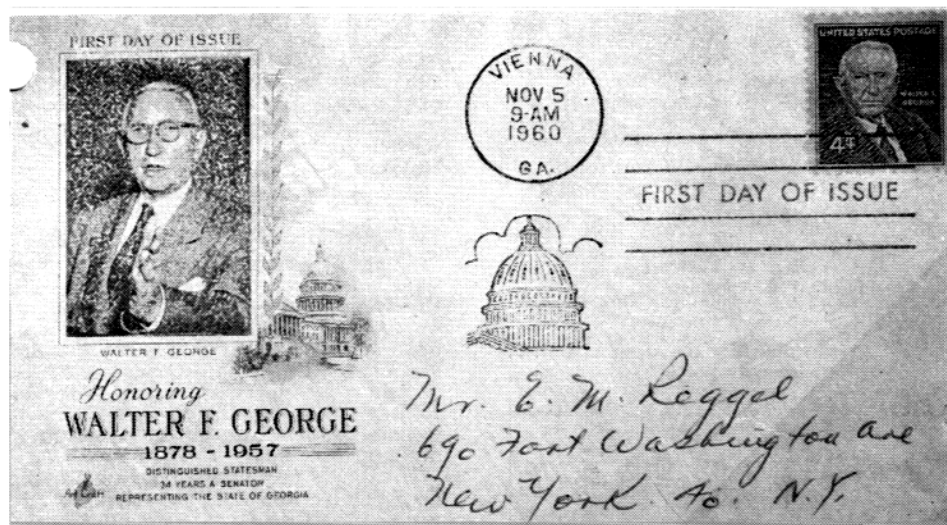 FIRST DAY OF ISSUE
WALTER F. GEORGE
Honoring
WALTER F. GEORGE
1878 - 1957
DISTINGUISHED STATESMAN
34 YEARS A SENATOR
REPRESENTING THE STATE OF GEORGIA
Art Craft
VIENNA
NOV 5
9-AM
1960
GA.
UNITED STATES POSTAGE
WALTER F.
GEORGE
4¢
FIRST DAY OF ISSUE
Mr. E. M. Reggel
690 Fort Washington Ave
New York 40. N.Y.